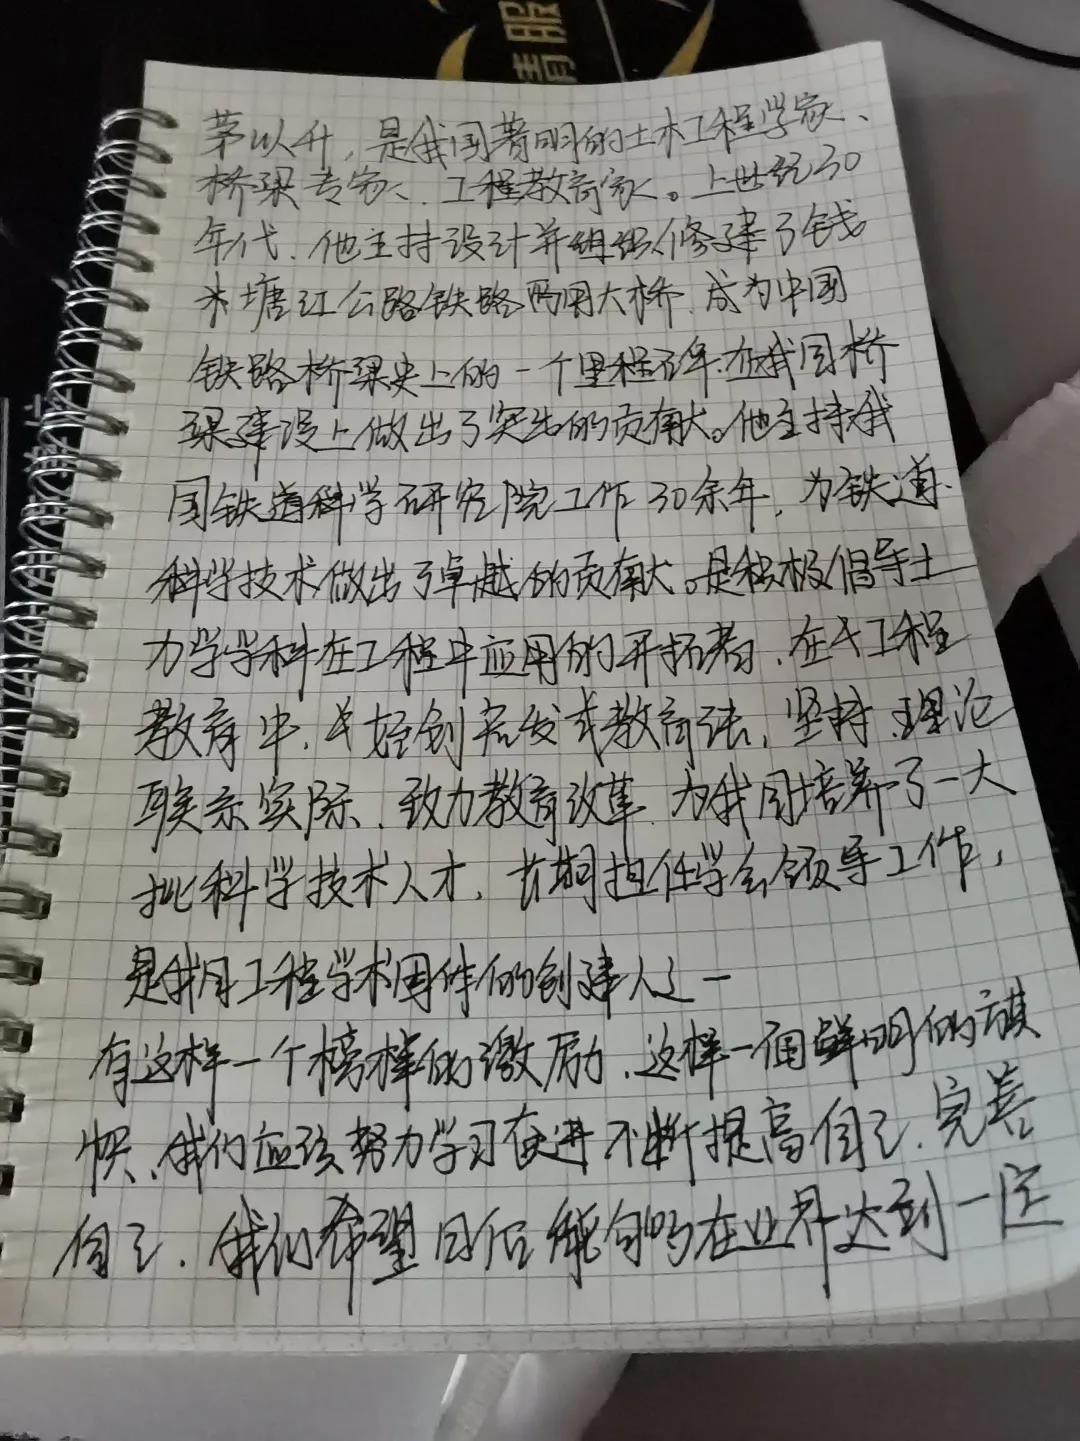 情服
茅以升，是我国著明的土木工程学家、
桥梁专家、工程教育家。上世纪30
年代、他主持设计并组织修建了钱
塘江公路铁路两用大桥、成为中国
铁路桥梁史上的一个里程碑.在我国桥
梁建设上做出了突出的贡献。他主持我
国铁道科学研究院工作30余年，为铁道
科学技术做出了卓越的贡献。是积极倡导土
力学学科在工程中应用的开拓者、在工程
教育中、创启发式教育法，坚持理论
联系实际、致力教育改革、为我国培养了一大
批科学技术人才、长期担任学会领导工作，
是我国工程学术团体的创建人之一
有这样一个榜样的激励、这样一面鲜明的旗
帜、我们应该努力学习奋进不断提高自己、完善
自己、我们希望日后能够在业界达到一定